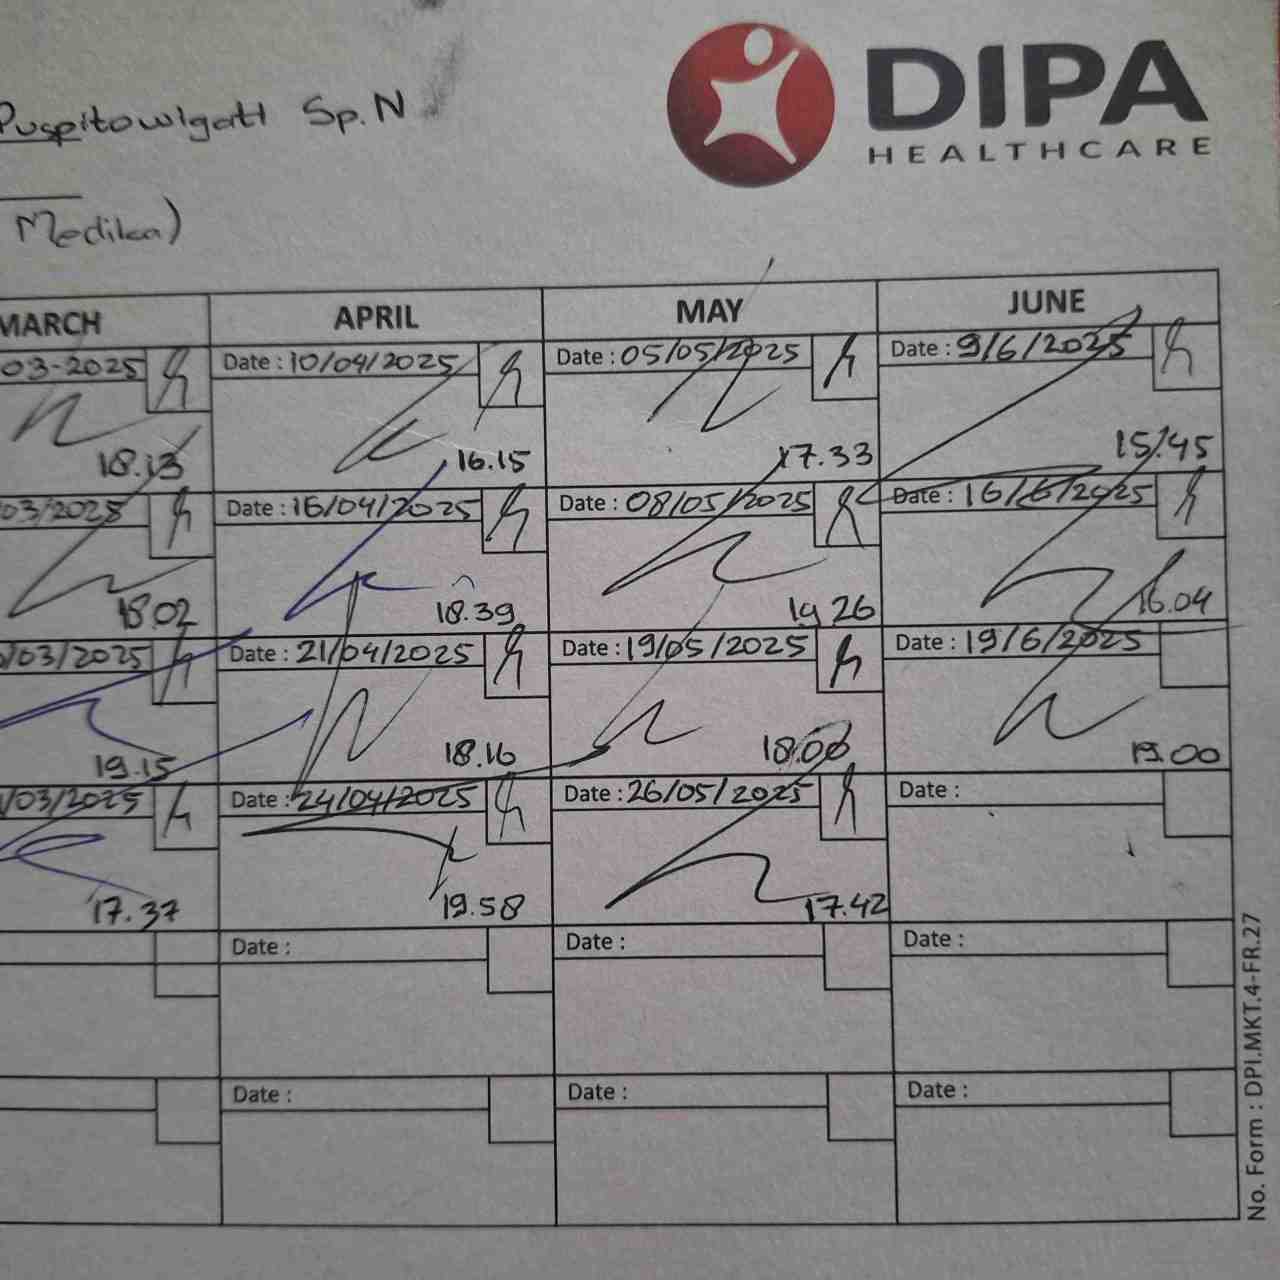 DIPA
HEALTHCARE
Sp.N
Medika)
MARCH APRIL MAY JUNE
03-2025 Date : 10/04/2025 Date : 05/05/2025 Date : 9/6/2025
18.13 16.15 17.33 15.45
03/2025 Date : 16/04/2025 Date : 08/05/2025 Date : 16/6/2025
18.02 18.39 19 26 16.04
/03/2025 Date : 21/04/2025 Date : 19/05/2025 Date : 19/6/2025
19.15 18.16 18.00 19.00
/03/2025 Date : 24/04/2025 Date : 26/05/2025 Date :
17.37 19.58 17.42
Date : Date : Date :
Date : Date : Date :
No. Form : DPI.MKT.4-FR.27